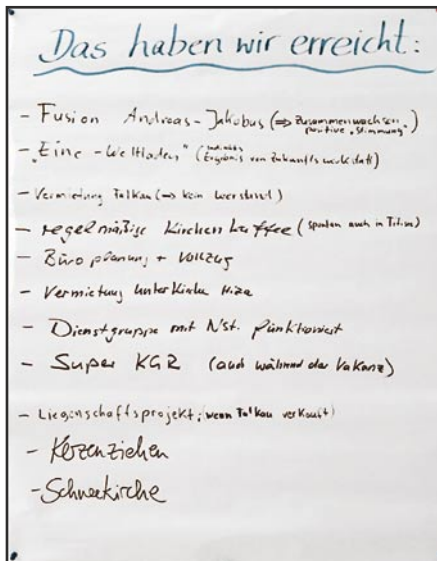 Das haben wir erreicht:
- Fusion Andreas-Jakobus (⇒ Zusammenwachsen positive „Stimmung")
- „Eine-Weltladen" (indirektes Ergebnis von Zukunftswerkstatt)
- Vermietung Falkau (⇒ kein
- regelmäßige Kirchenkaffee (spontan auch in Titisee)
- Büroplanung + Vollzug
- Vermietung Unterkirche Hiza
- Dienstgruppe mit Nst. funktioniert
- Super KGR (auch während der Vakanz)
- Liegenschaftsprojekt; (wenn Falkau verkauft)
- Kerzenziehen
- Schneekirche